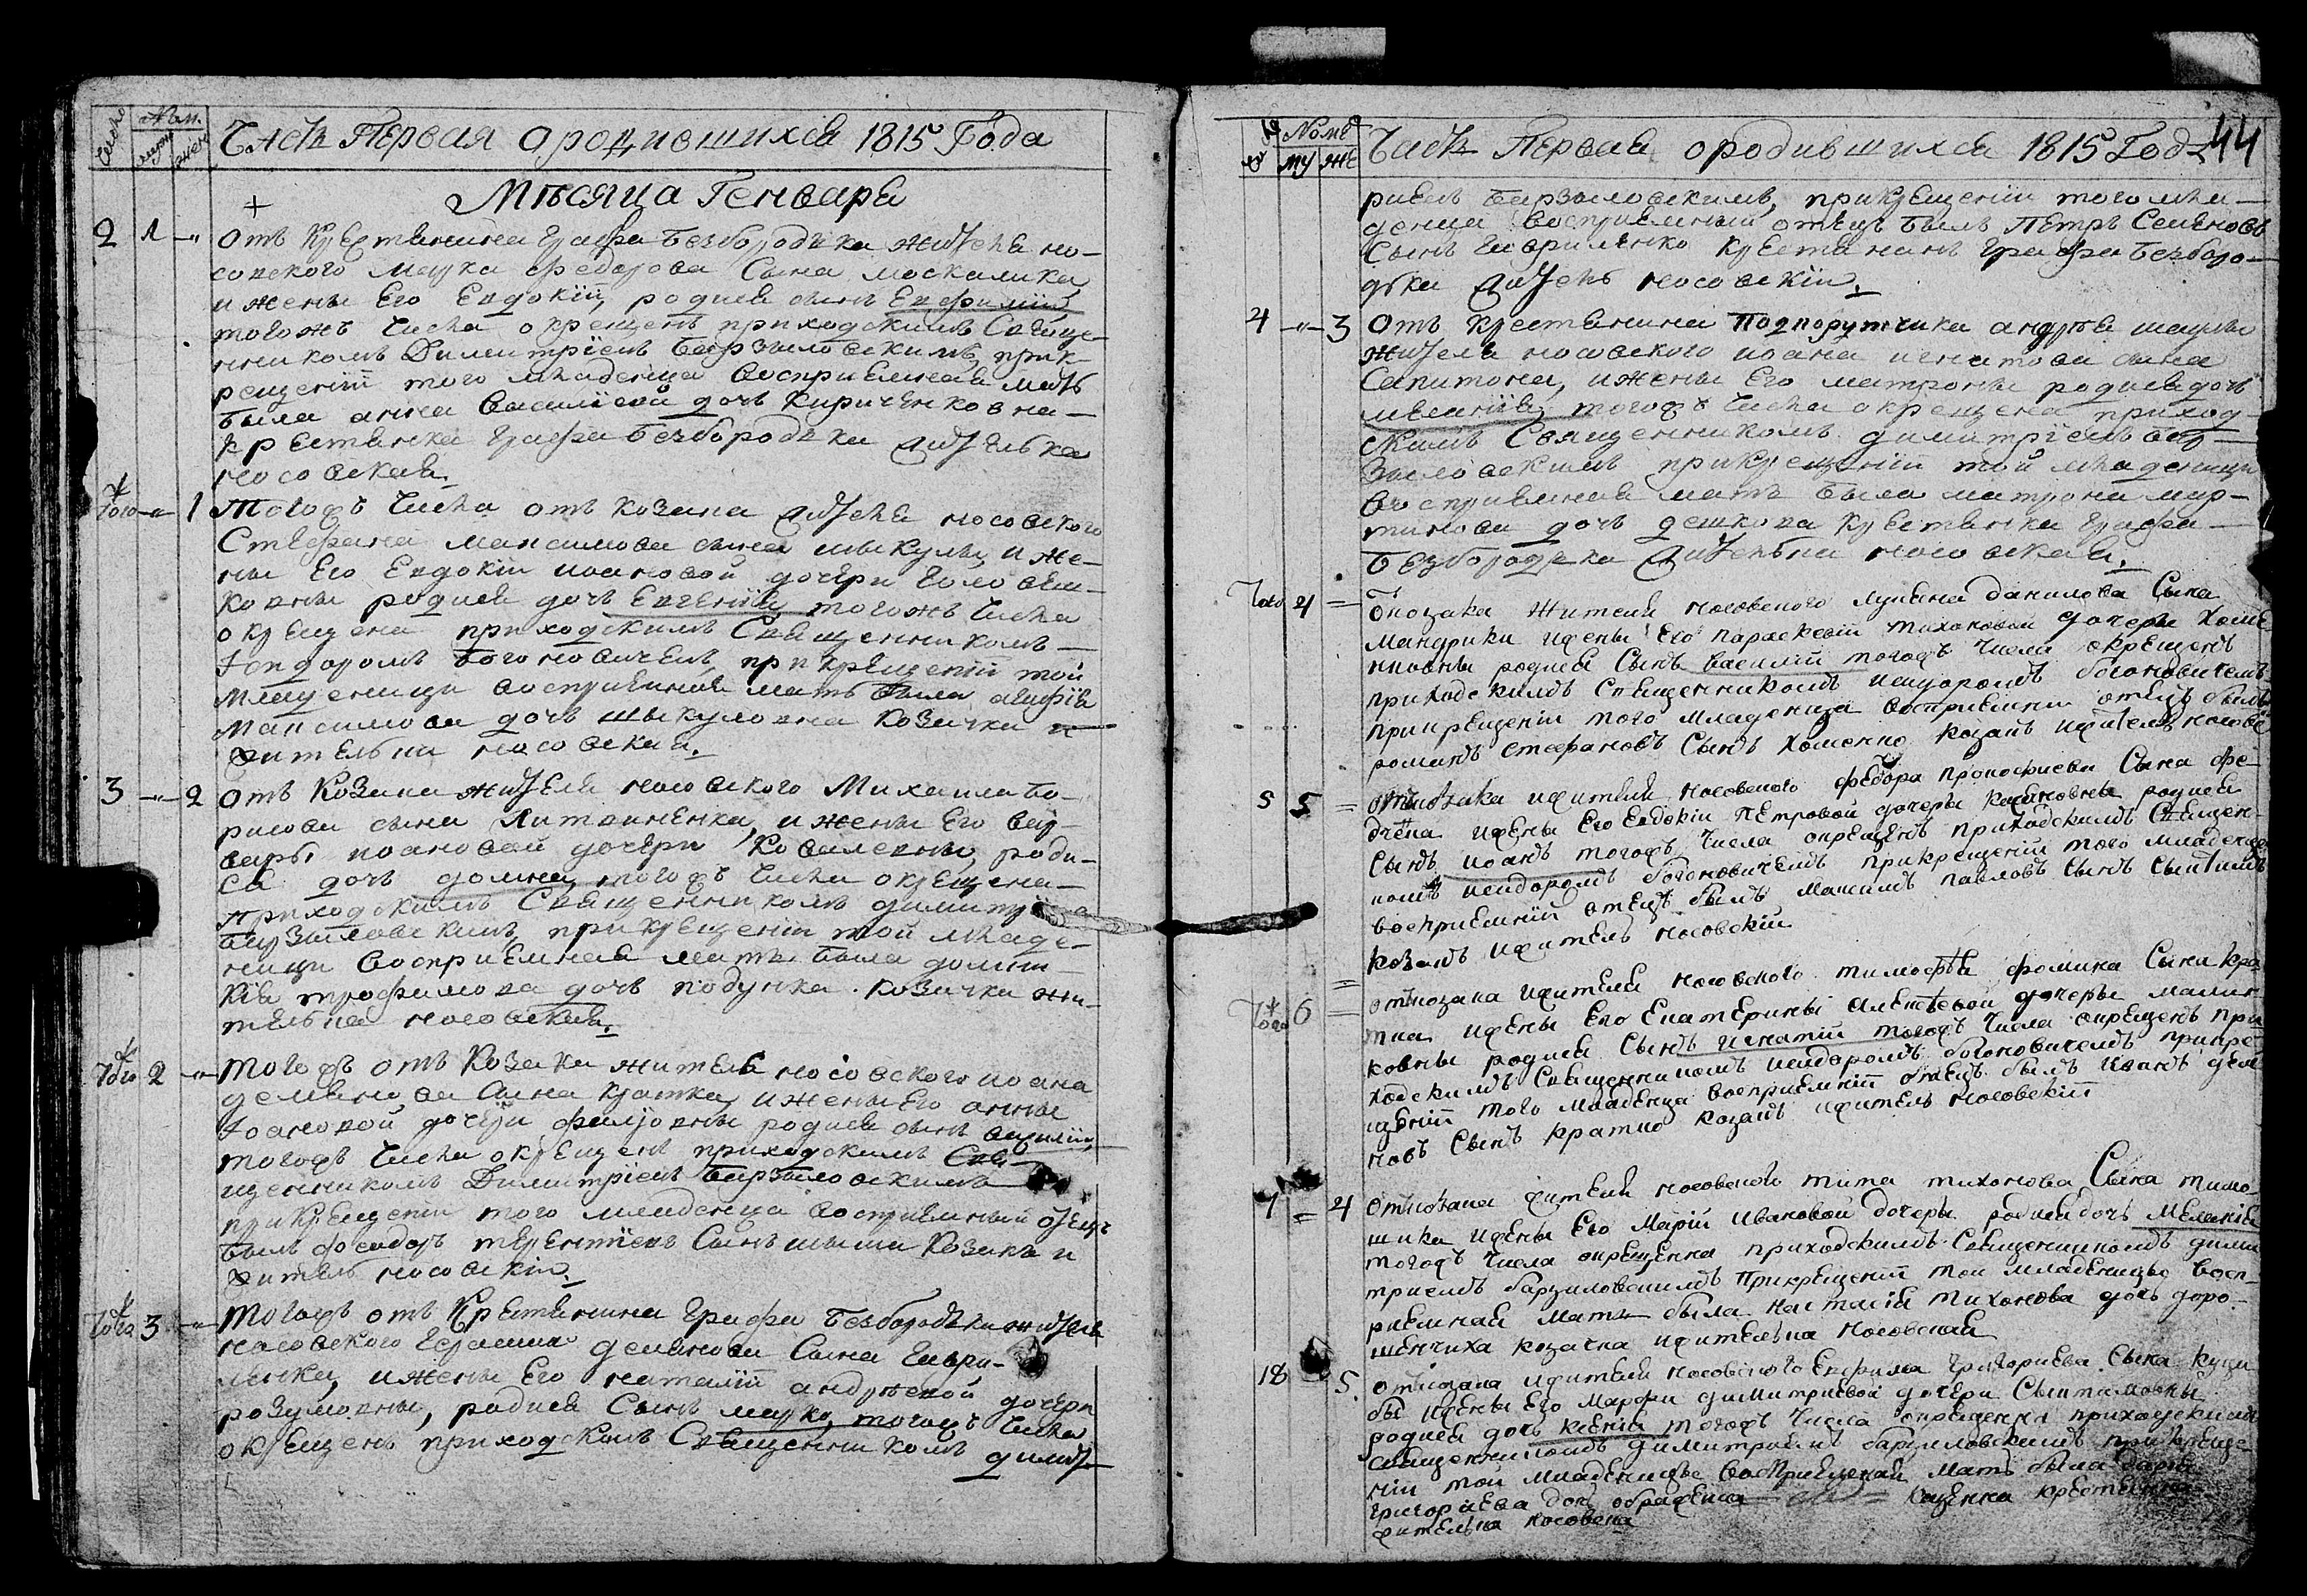 Число
Ном.
муж
жен
Часть Первая ородившихся 1815 Года
Мѣсяца Генваря
2 1 -"- Отъ Крестьянина Графа Безбородька жителя но-
совского Марка Федорова Сына москалика
и жены Его Евдокіи, родися сынъ Евфимій
тогожъ Числа окрещенъ приходскимъ Свяще-
нникомъ Димитріемъ Барзыловскимъ, прик-
рещеніи того младенца восприемная мать
была анна Василіева дочь Кириченковна
крестьянка Графа Безбородька жителька
носовская.
Того -"- 1 Тогожъ Числа отъ козака жителя носовского
Стефана максимова сына шыкулы, и же-
ны Его Евдокіи иоановой дочери Голове-
ковны родися дочь Евгенія, тогожъ Числа
окрещена приходскимъ Священникомъ
Ісидоромъ Богоновичемъ, при крещеніи той
младеницы восприемная мать была агафія
максимова дочь шыкуловна козачка и
жителька носовская.
3 -"- 2 отъ Козака жителя носовского Михаила бо-
рисова сына Литвиненка, и жены Его вар-
вары иоановой дочери Ковалевны, роди-
ся дочь домна, тогожъ Числа окрещена
приходскимъ Священникомъ димитр
барзыловскимъ, при крещеніи той младе-
ницы восприемная мать была
трофимова дочь козачка жи-
телька носовская.
Того 2 -"- Тогожъ отъ Козака жителя носовского иоана
демянова сына кратка, и жены Его анны
Іоановой дочери родися сынъ василій,
тогожъ Числа окрещенъ приходскимъ Свя-
щенникомъ Димитріемъ барзыловскимъ
при крещеніи того младенца восприемный отецъ
былъ феодоръ терентіевъ Сынъ Козакъ и
житель носовскій.
Того 3 -"- Тогожъ отъ Крестьянина Графа Безбородька жителя
носовского Герасима демянова Сына Гаври-
ленка, и жены Его наталіи андрѣевой дочери
розумовны, родися Сынъ марко, тогожъ Числа
окрещенъ приходскимъ Священникомъ димит
44
Номе
му же
Часть Первая ородившихся 1815 Года
риемъ барзыловскимъ, прикрещеніи того мла-
денца восприемный отецъ былъ Петръ Семеновъ
Сынъ Гавриленко крестянинъ Графа безборо-
дька житель носовскій.
4 -"- 3 Отъ крестьянина Подпорутчика андрѣя
жителя носовского иоана игнатова сына
Сапитона, и жены Его матроны родися дочь
меланія, тогожъ Числа окрещена приход-
скимъ Священникомъ димитріемъ бар-
зыловскимъ прикрещеніи той младеници
восприемная мать была матрона мар-
тинова дочь дешкова крестьянка Графа
Безбородька жителька носовская.
Того 4 = Ѿ козака жителя носовского лукяна данилова Сына
Мандрики и жены Его параскевіи тихоновой дочеры хоме-
нковны родися Сынъ василій тогожъ Числа окрещенъ
приходскимъ Священникомъ исидоромъ богоновичемъ
прикрещеніи того младенца восприемный отецъ былъ
романъ стефановъ Сынъ хоменко козакъ и житель носов
5 5 = отъ козака и жителя носовского федора прокофиева Сына фе-
дчена и жены Его Евдокіи Петровой дочеры родися
Сынъ иоанъ тогожъ Числа окрещенъ приходскимъ Священ-
никомъ исидоромъ богоновичемъ прикрещеніи того младенца
восприемній отецъ былъ максимъ павловъ Сынъ
козакъ и житель носовскій
Того 6 = отъ козака и жителя носовского тимофѣя фомина Сына кра-
тка и жены Его Екатерины алексѣевой дочеры малин-
ковны родися Сынъ игнатій тогожъ Числа окрещенъ при-
ходскимъ Священникомъ исидоромъ богоновичемъ прикре-
щеніи того младенца восприемній отецъ былъ иванъ демя
новъ Сынъ кратко козакъ и житель носовскій
7 = 4 отъ козака жителя носовского тита тихонова Сына тимо-
шика и жены Его Маріи ивановой дочеры родися дочь Меланія
тогожъ Числа окрещенна приходскимъ Священникомъ дими
триемъ барзиловскимъ прикрещеніи той младеницы восп-
риемная мать была настасія тихонова дочь доро-
шенчиха козачка и жителька носовская
18 - 5 отъ козака и жителя носовского Евфима григориева Сына куци
бы и жены Его Марфы димитриевой дочери
родися дочь ксенія тогожъ Числа окрещенна приходскимъ
священникомъ димитриемъ барзиловскимъ прикреще-
ніи той младеницы восприемная мать была
григориева дочь крестьянка
жителька носовска